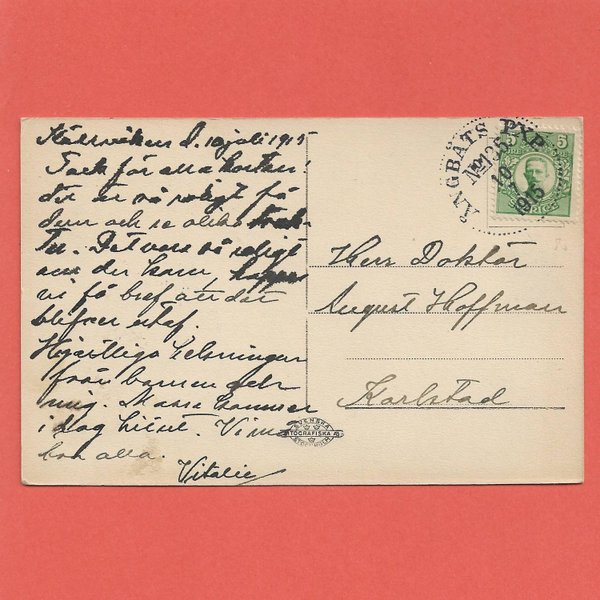 d. 10 juli 1915
Tack för alla korten!
det är så roligt få
dem och se olika trak-
ter. Det vore så roligt
om der kom,
vi få bref att det
blifver utaf.
Hjärtliga helsningar
från barnen och
mig.
i dag hit. Vi må
bra alla.
Vitalie
ÅNGBÅTS PXP
No 135
10 7
1915
5 5
SVERIGE
Herr Doktor
August Hoffman
Karlstad
SVENSKA
LITOGRAFISKA AB
STOCKHOLM